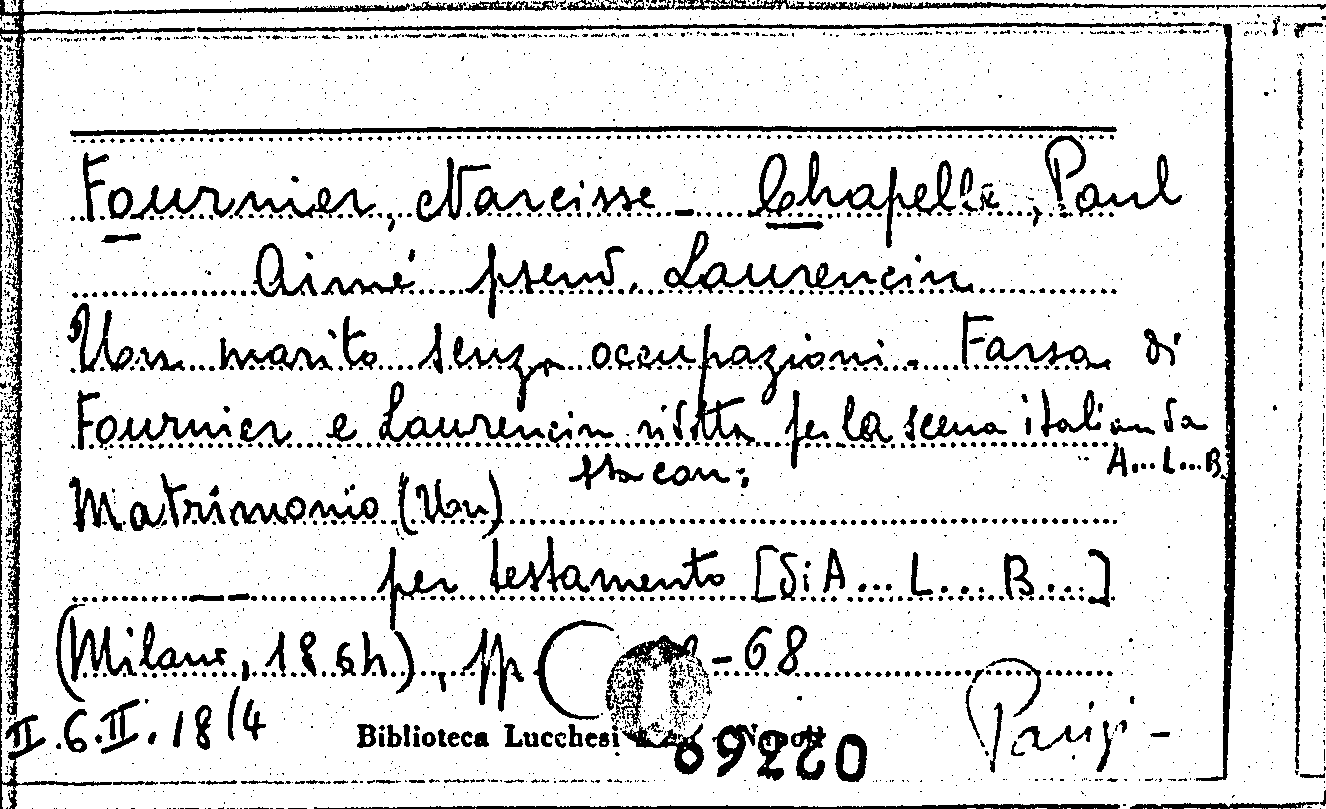 Fournier, Narcisse - Chapelle, Paul
Aimé pseud. Laurencin
Un marito senza occupazioni. Farsa di
Fournier e Laurencin ridotta per la scena italian da
A...L...B
sta con:
Matrimonio (Un)
per testamento [di A... L... B...]
(Milano, 1864), pp. -68
II.6.II.18(4
Biblioteca Lucchesi Napoli
02269
Parigi -